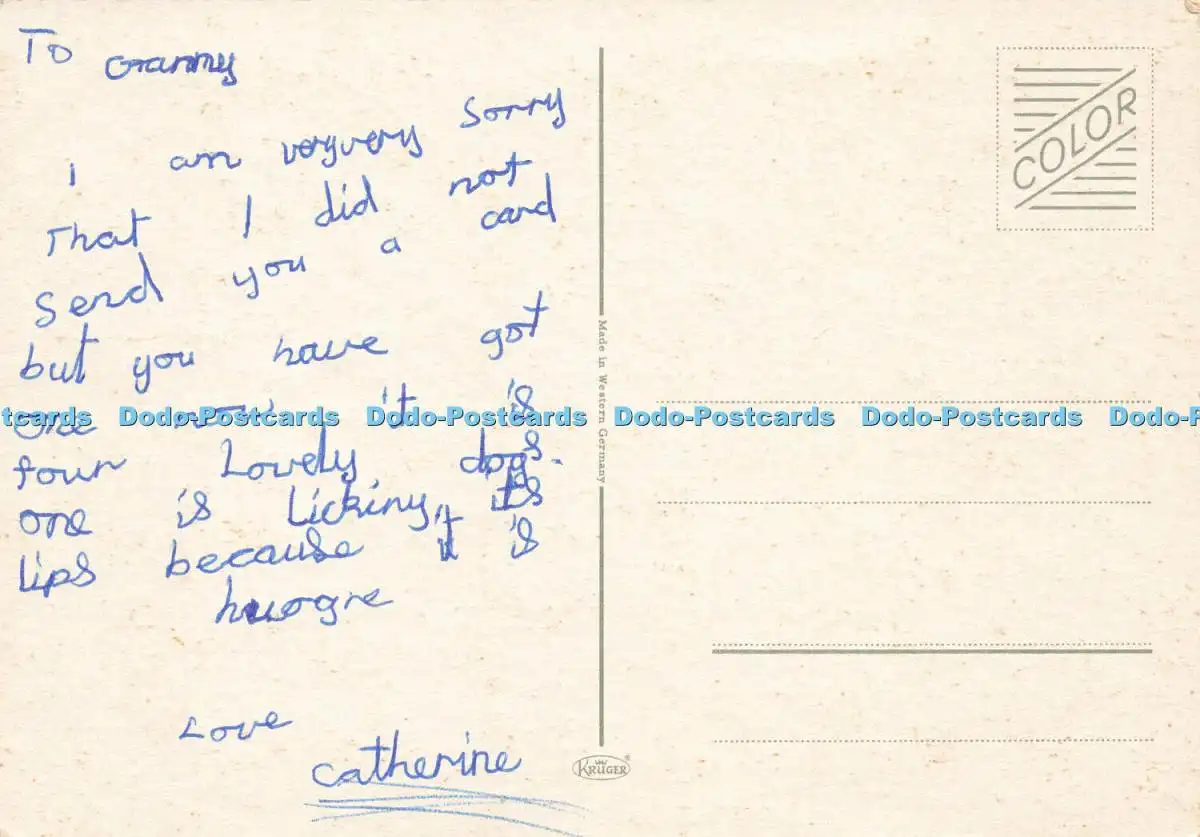 To Granny
I am veryvery sorry
That I did not
Send you a card
but you have got
one now it is
four Lovely dogs.
one is Licking its
lips because it is
huogre
Love
Catherine
COLOR
Made in Western Germany
KRÜGER
tcards Dodo-Postcards Dodo-Postcards Dodo-Postcards Dodo-Postcards Dodo-P